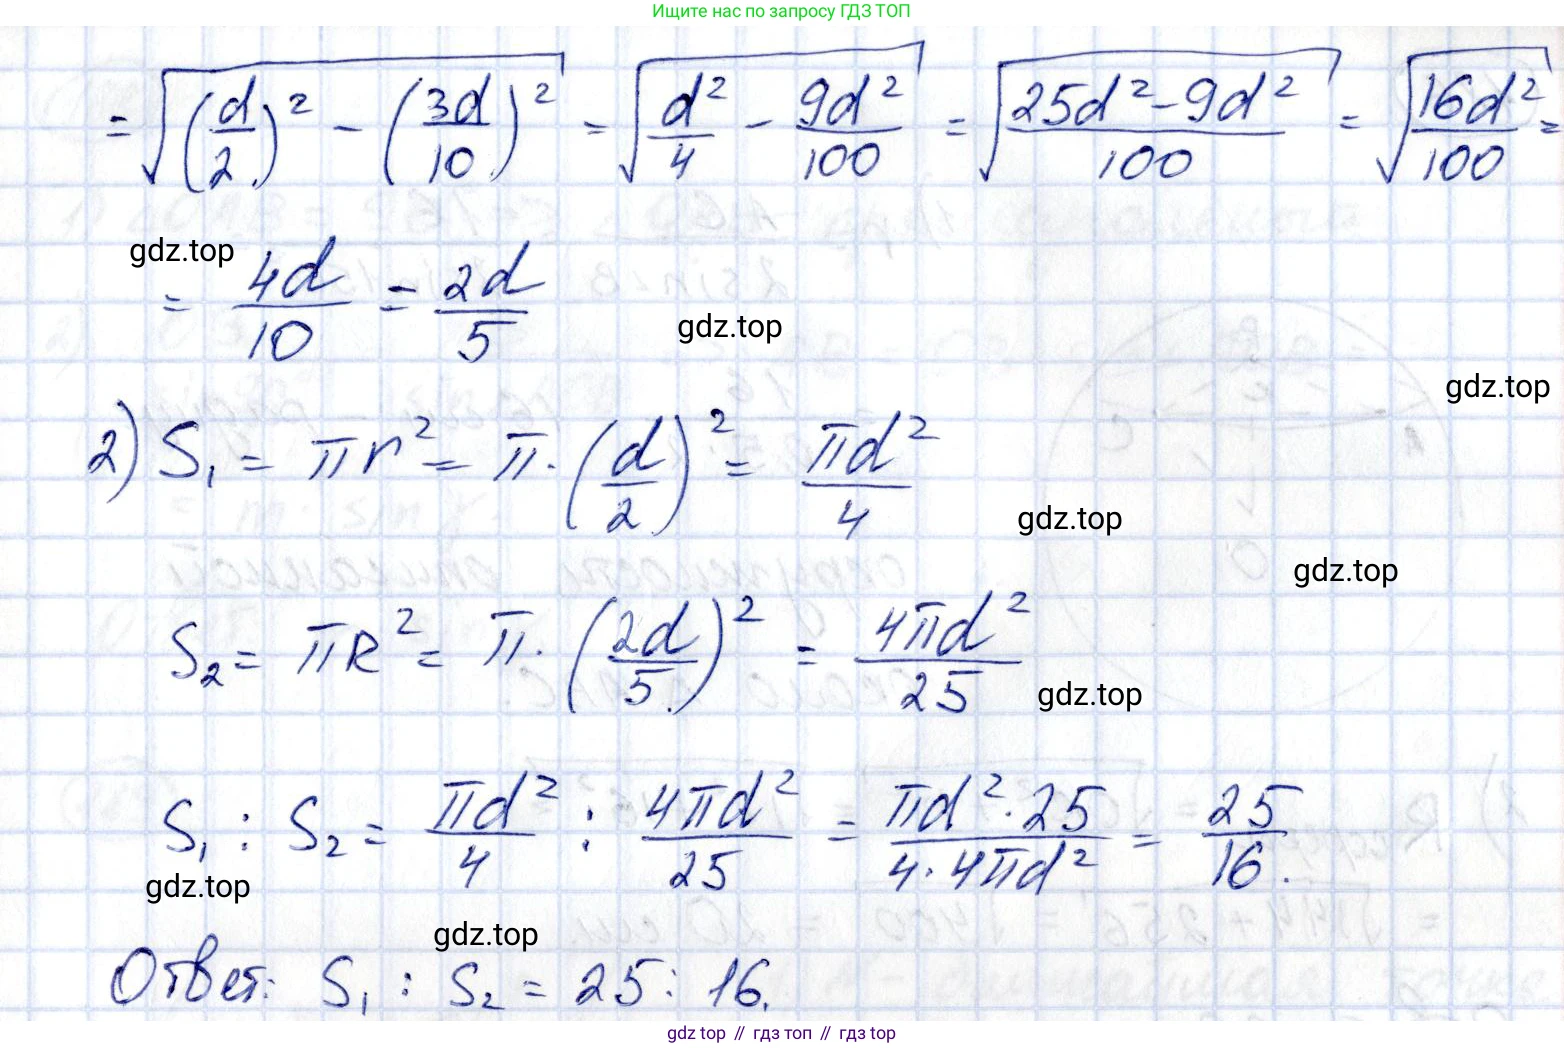 Ищите нас по запросу ГДЗ ТОП
= √((d/2)² - (3d/10)²) = √(d²/4 - 9d²/100) = √((25d² - 9d²)/100) = √(16d²/100) =
gdz.top
= 4d/10 = 2d/5
gdz.top
gdz.top
2) S₁ = πr² = π · (d/2)² = πd²/4
gdz.top
gdz.top
S₂ = πR² = π · (2d/5)² = 4πd²/25
gdz.top
S₁ : S₂ = πd²/4 : 4πd²/25 = (πd² · 25)/(4 · 4πd²) = 25/16.
gdz.top
gdz.top
Ответ: S₁ : S₂ = 25 : 16.
gdz top // гдз топ // гдз top